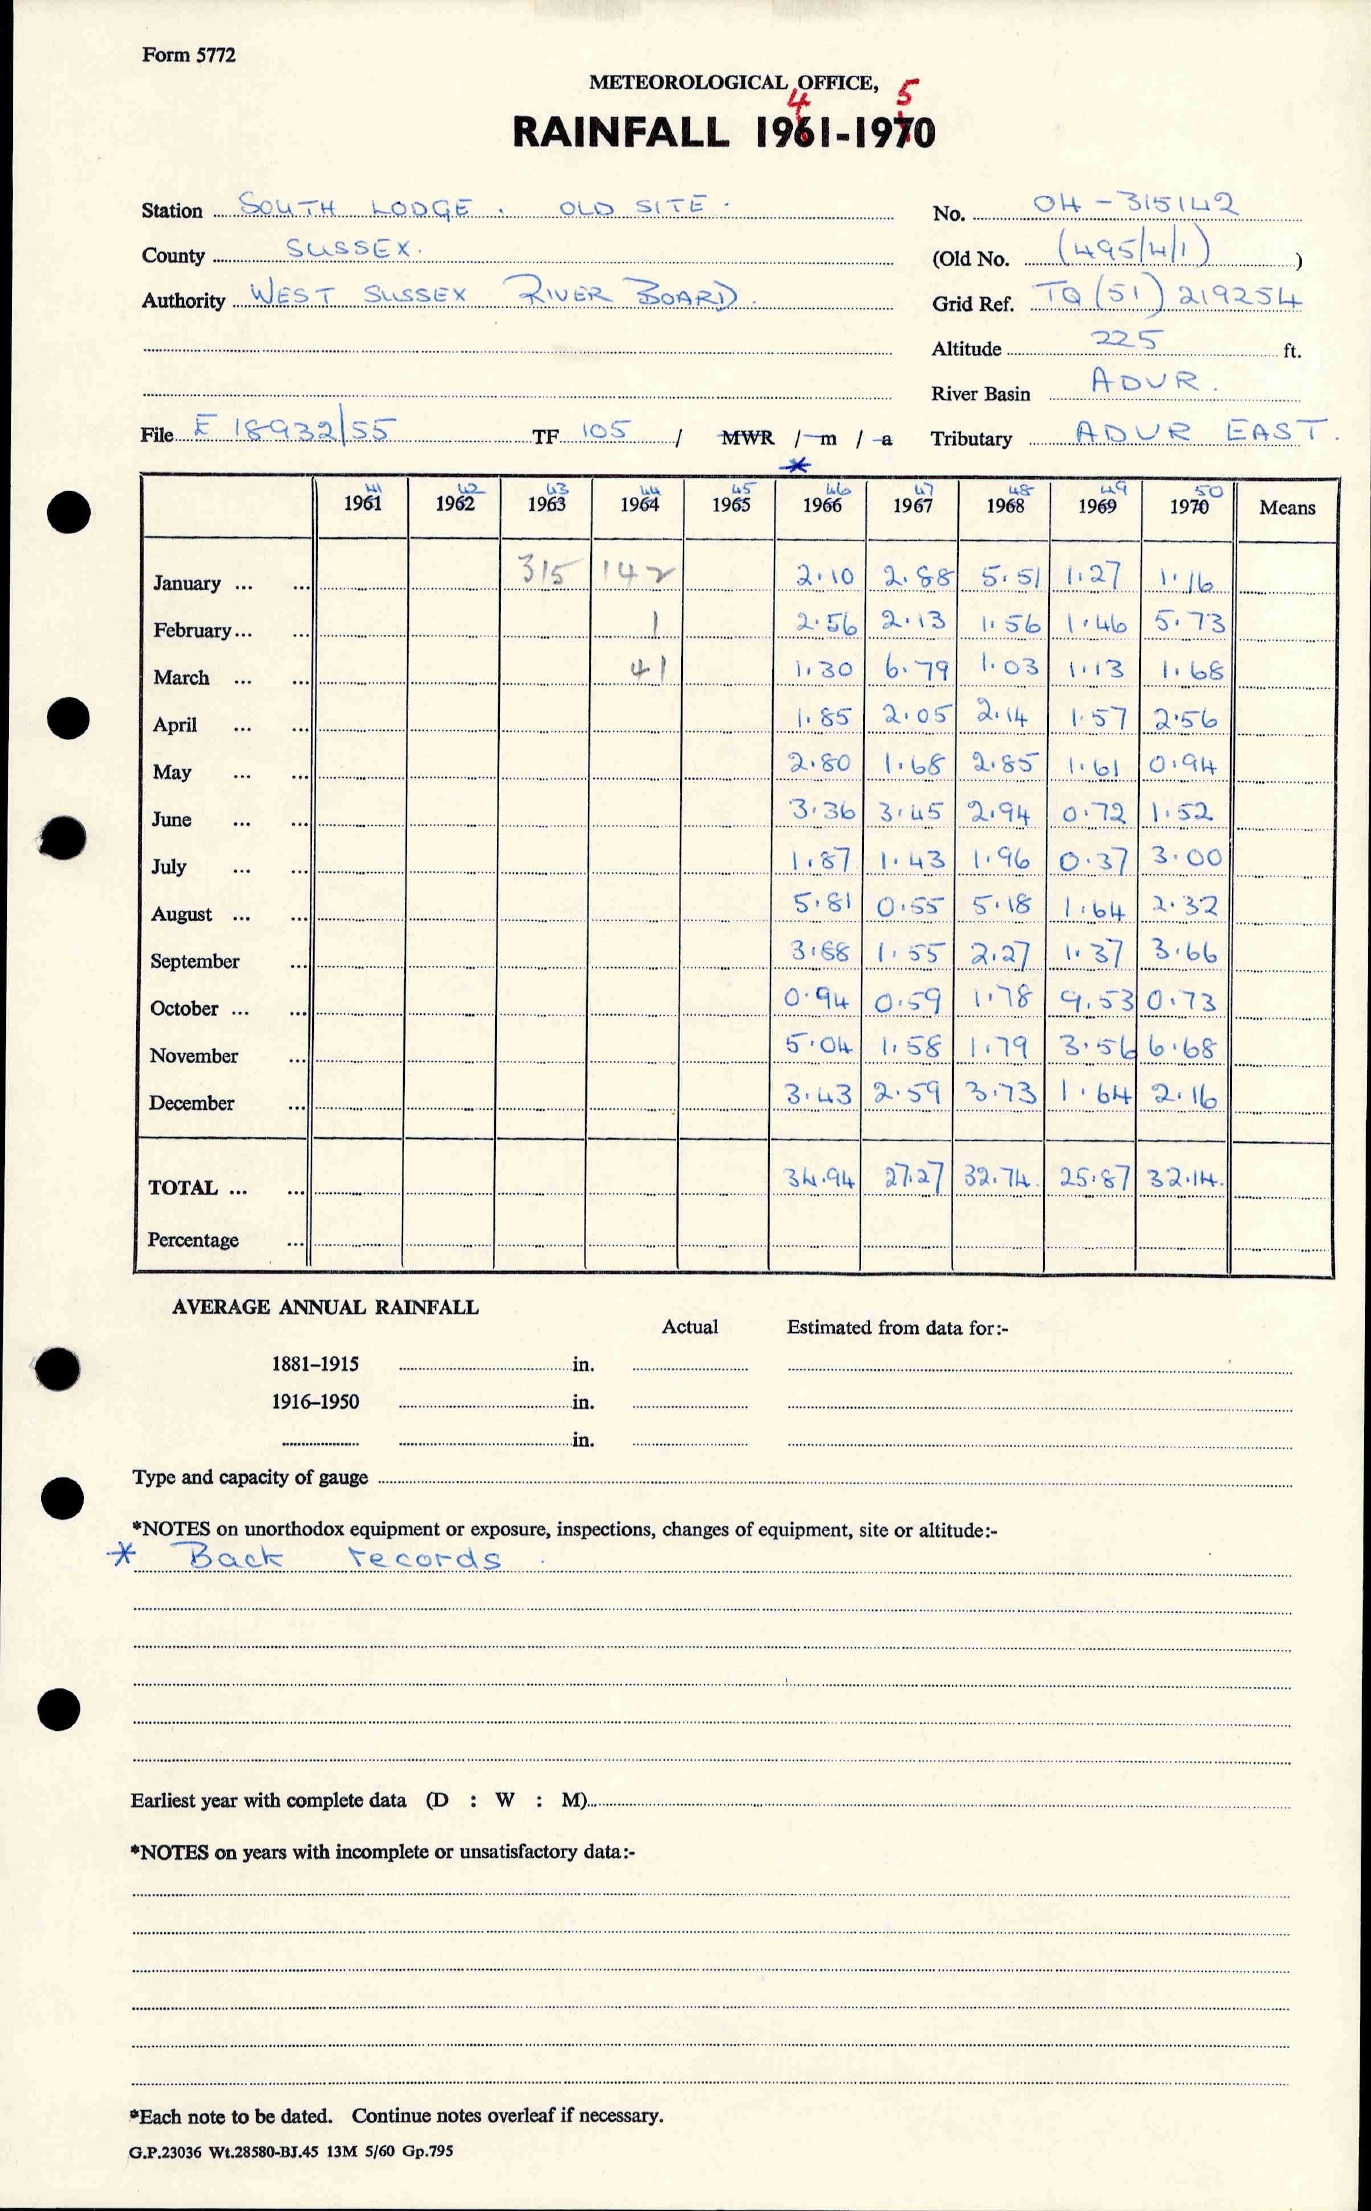 Form 5772
METEOROLOGICAL OFFICE,
4 5
RAINFALL 1961-1970
Station SOUTH LODGE. OLD SITE.
No. 04-315142
County SUSSEX.
(Old No. (495/4/1) )
Authority WEST SUSSEX RIVER BOARD.
Grid Ref. TQ (51) 219254
Altitude 225 ft.
River Basin ADUR.
File E 18932/55 TF 105 / MWR / m / a Tributary ADUR EAST.
*
41 42 43 44 45 46 47 48 49 50
1961 1962 1963 1964 1965 1966 1967 1968 1969 1970 Means
January ... ... 315 142 2.10 2.88 5.51 1.27 1.16
February ... ... 1 2.56 2.13 1.56 1.46 5.73
March ... ... 41 1.30 6.79 1.03 1.13 1.68
April ... ... 1.85 2.05 2.14 1.57 2.56
May ... ... 2.80 1.68 2.85 1.61 0.94
June ... ... 3.36 3.45 2.94 0.72 1.52
July ... ... 1.87 1.43 1.96 0.37 3.00
August ... ... 5.81 0.55 5.18 1.64 2.32
September ... 3.88 1.55 2.27 1.37 3.66
October ... ... 0.94 0.59 1.78 9.53 0.73
November ... 5.04 1.58 1.79 3.56 6.68
December ... 3.43 2.59 3.73 1.64 2.16
TOTAL ... ... 34.94 27.27 32.74. 25.87 32.14.
Percentage ...
AVERAGE ANNUAL RAINFALL
Actual Estimated from data for:-
1881–1915 in.
1916–1950 in.
in.
Type and capacity of gauge
*NOTES on unorthodox equipment or exposure, inspections, changes of equipment, site or altitude:-
* Back records.
Earliest year with complete data (D : W : M)
*NOTES on years with incomplete or unsatisfactory data:-
*Each note to be dated. Continue notes overleaf if necessary.
G.P.23036 Wt.28580-BJ.45 13M 5/60 Gp.795